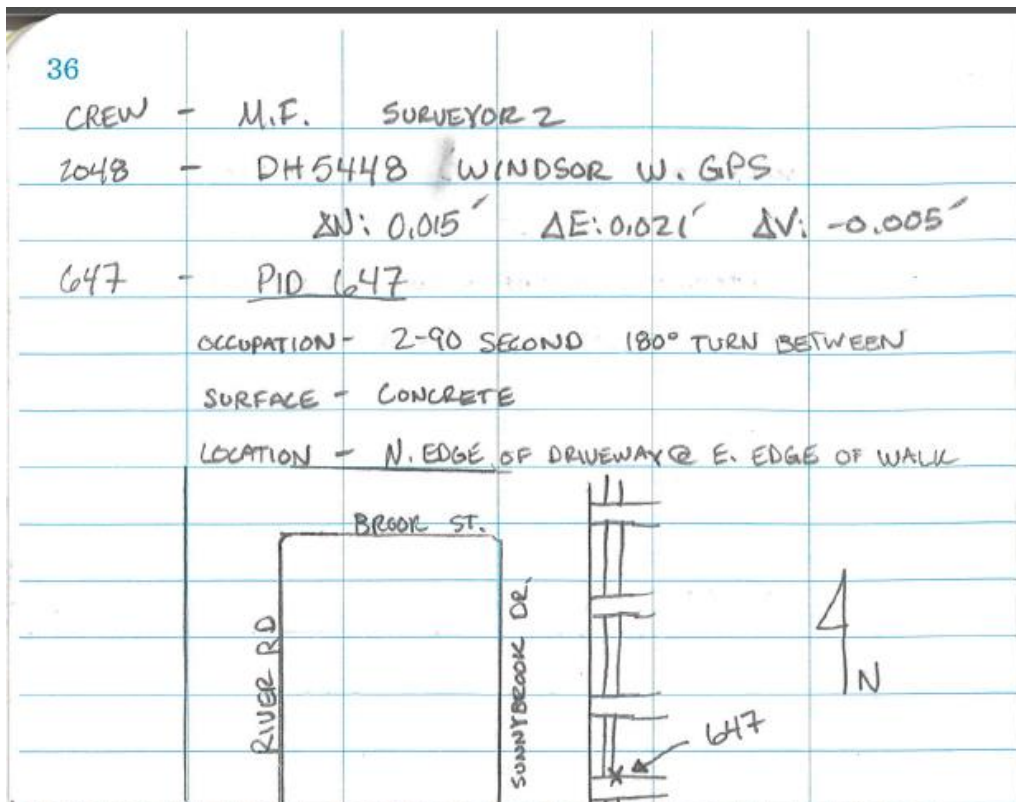 36
CREW - M.F. SURVEYOR 2
2048 - DH5448 WINDSOR W. GPS
ΔN: 0.015' ΔE: 0.021' ΔV: -0.005'
647 - PID 647
OCCUPATION - 2-90 SECOND 180° TURN BETWEEN
SURFACE - CONCRETE
LOCATION - N. EDGE OF DRIVEWAY @ E. EDGE OF WALK
BROOK ST.
RIVER RD
SUNNYBROOK DR.
N
647